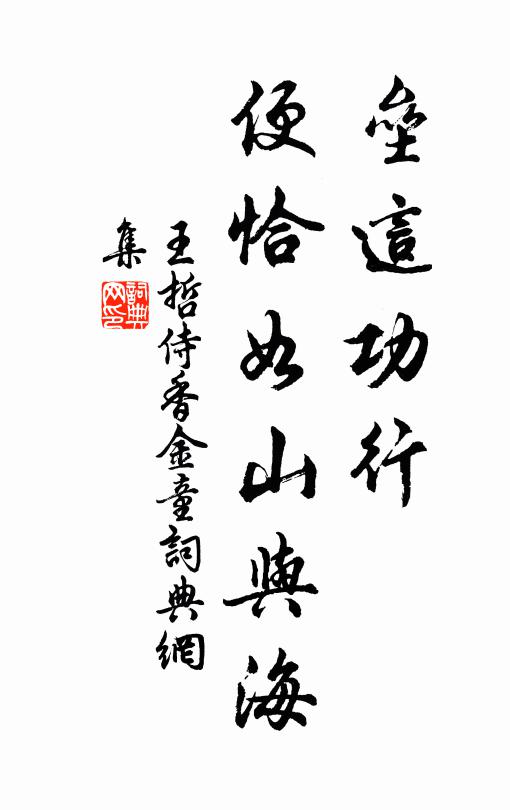 垒這功行
便恰如山與海
王哲侍香金童詞典網
集
詞典
网印